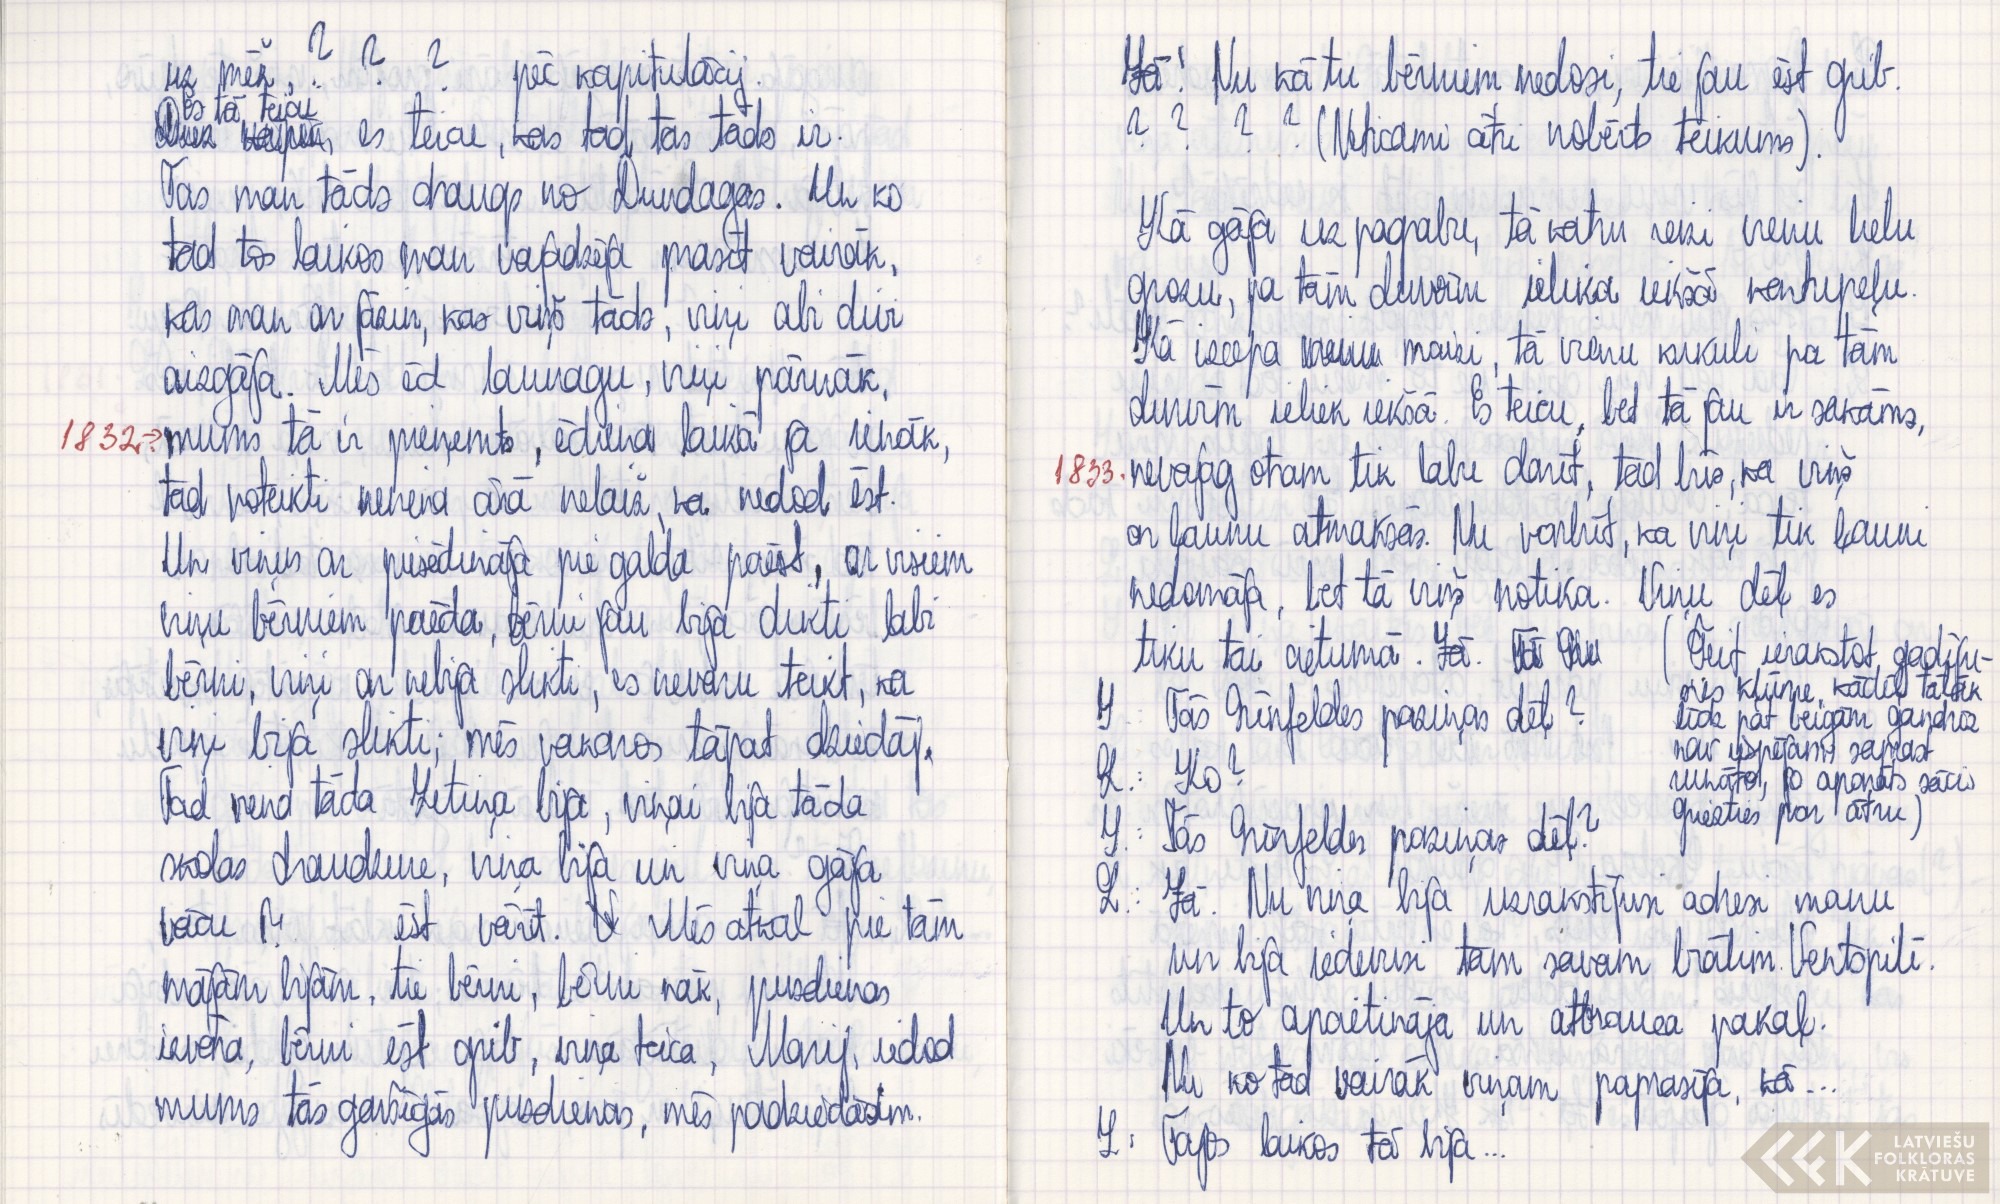 uz mēŗ, ? ? ? pēc kapitulācij.
es tā teicu
es teicu, kas tad tas tāds ir.
Tas man tāds draugs no Dundagas. Un ko
tad tos laikos man vajadzēja prasīt vairāk,
kas man ar jāzin, kas viņš tāds, viņi abi divi
aizgāja. Mēs ēd launagu, viņi pārnāk,
1832→ mums tā ir pieņemts, ēdiena laikā ja ienāk,
tad noteikti neviena ārā nelaiž, ka nedod ēst.
Un viņus ar piesēdināja pie galda paēst, ar visiem
viņu bērniem paēda, bērni jau bija dikti labi
bērni, viņi ar nebija slikti, es nevaru teikt, ka
viņi bija slikti; mēs vakaros tāpat dziedāj.
Tad viena tāda Zetiņa bija, viņai bija tāda
skolas draudzene, viņa bija un viņa gāja
vācu ?. ēst vārīt. Mēs atkal pie tām
mājām bijām, tie bērni, bērni nāk, pusdienas
izvāra, bērni ēst grib, viņa teica, Marij, iedod
mums tās garšīgās pusdienas, mēs padziedāsim.
Jā! Nu kā tu bērniem nedosi, tie jau ēst grib.
? ? ? ? (Neticami ātri nobērts teikums).
Kā gāja uz pagrabu, tā katru reizi vienu lielu
grozu, pa tām durvīm ielika iekšā kartupeļu.
Kā izcepa maizi, tā vienu kukuli pa tām
durvīm ieliek iekšā. Es teicu, bet tā jau ir sakāms,
1833. nevajag otram tik labu darīt, tad būs, ka viņš
ar ļaunu atmaksās. Nu varbūt, ka viņi tik ļauni
nedomāja, bet tā viņš notika. Viņu dēļ es
tiku tai cietumā. Jā.
(Šeit ierakstot, gadīju-
sies kļūme, kādēļ tālāk
līdz pat beigām gandrīz
nav iespējams saprast
runāto, jo aparāts sācis
griezties par ātru)
I.: Tās Grīnfeldes paziņas dēļ?
Z.: Ko?
I.: Tās Grīnfeldes paziņas dēļ?
Z.: Jā. Nu viņa bija uzrakstījusi adresi manu
un bija iedevusi tam savam brālim. Ventspilī.
Un to apcietināja un atbrauca pakaļ.
Nu ko tad vairāk viņam paprasīja, kā...
I.: Tajos laikos tā bija...
LATVIEŠU
FOLKLORAS
KRĀTUVE